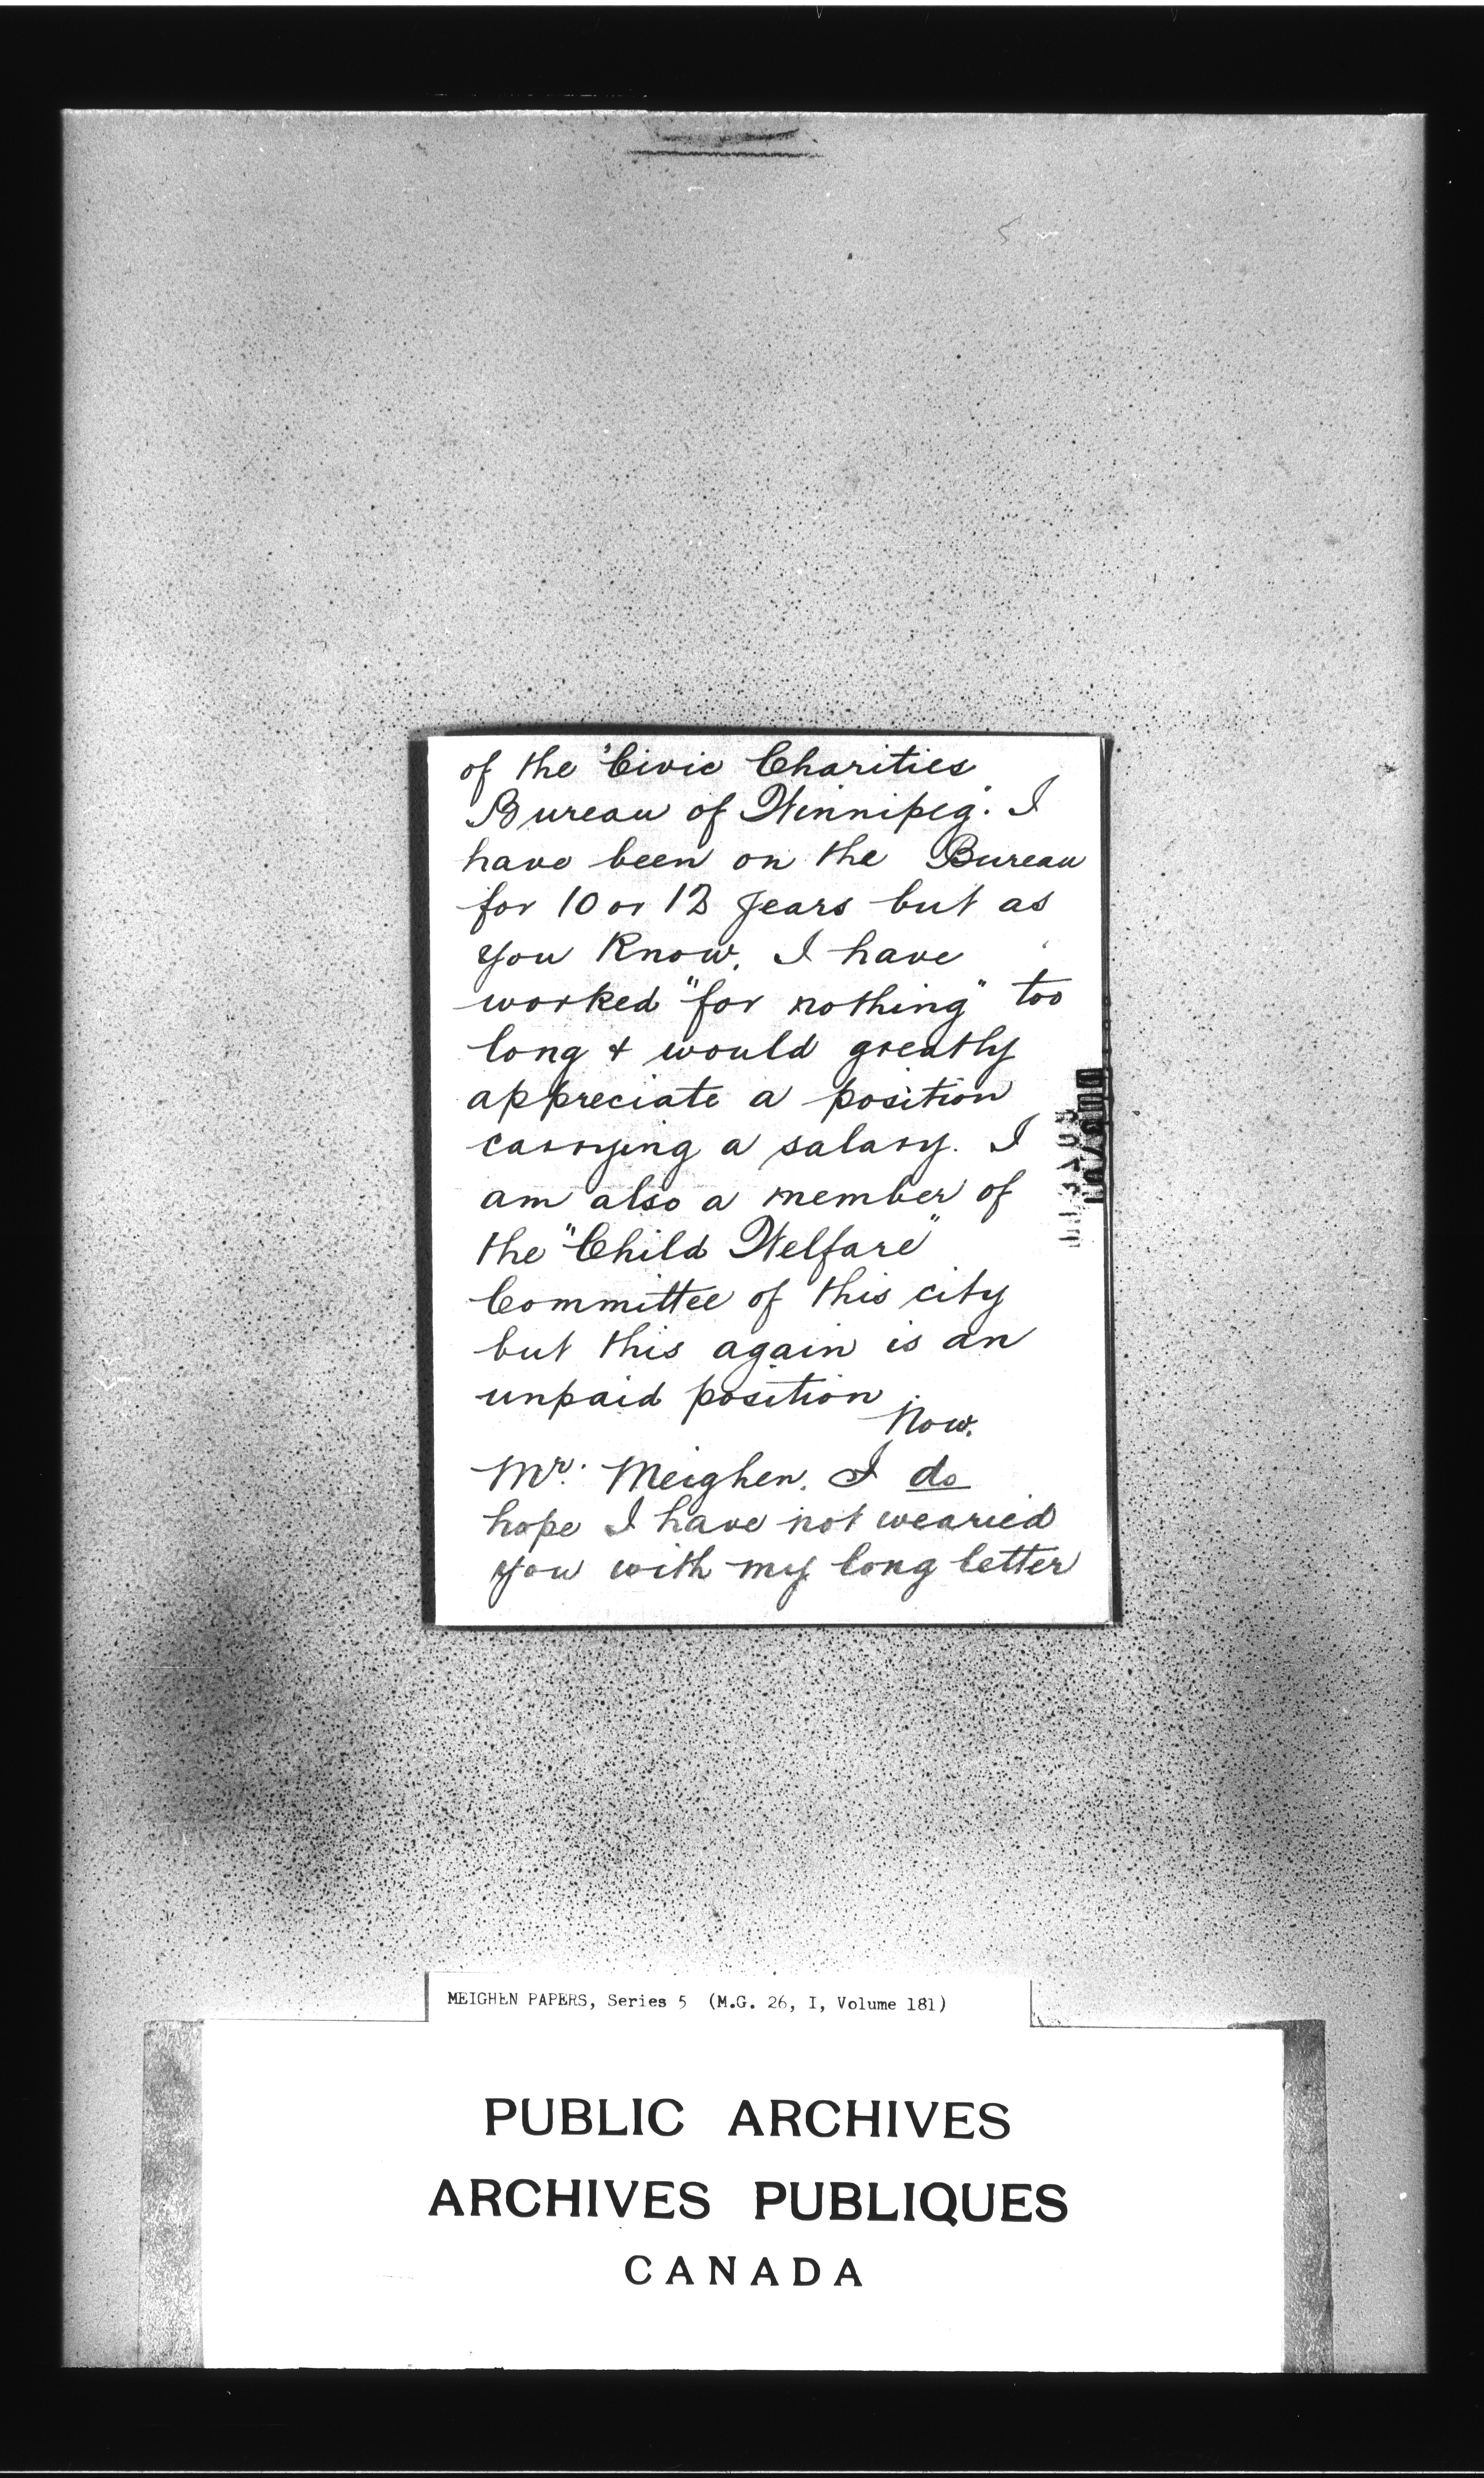 of the "Civic Charities
Bureau of Winnipeg". I
have been on the Bureau
for 10 or 12 years but as
you know, I have
worked "for nothing" too
long & would greatly
appreciate a position
carrying a salary. I
am also a member of
the "Child Welfare"
Committee of this city
but this again is an
unpaid position
Now,
Mr. Meighen, I do
hope I have not wearied
you with my long letter
MEIGHEN PAPERS, Series 5 (M.G. 26, I, Volume 181)
PUBLIC ARCHIVES
ARCHIVES PUBLIQUES
CANADA